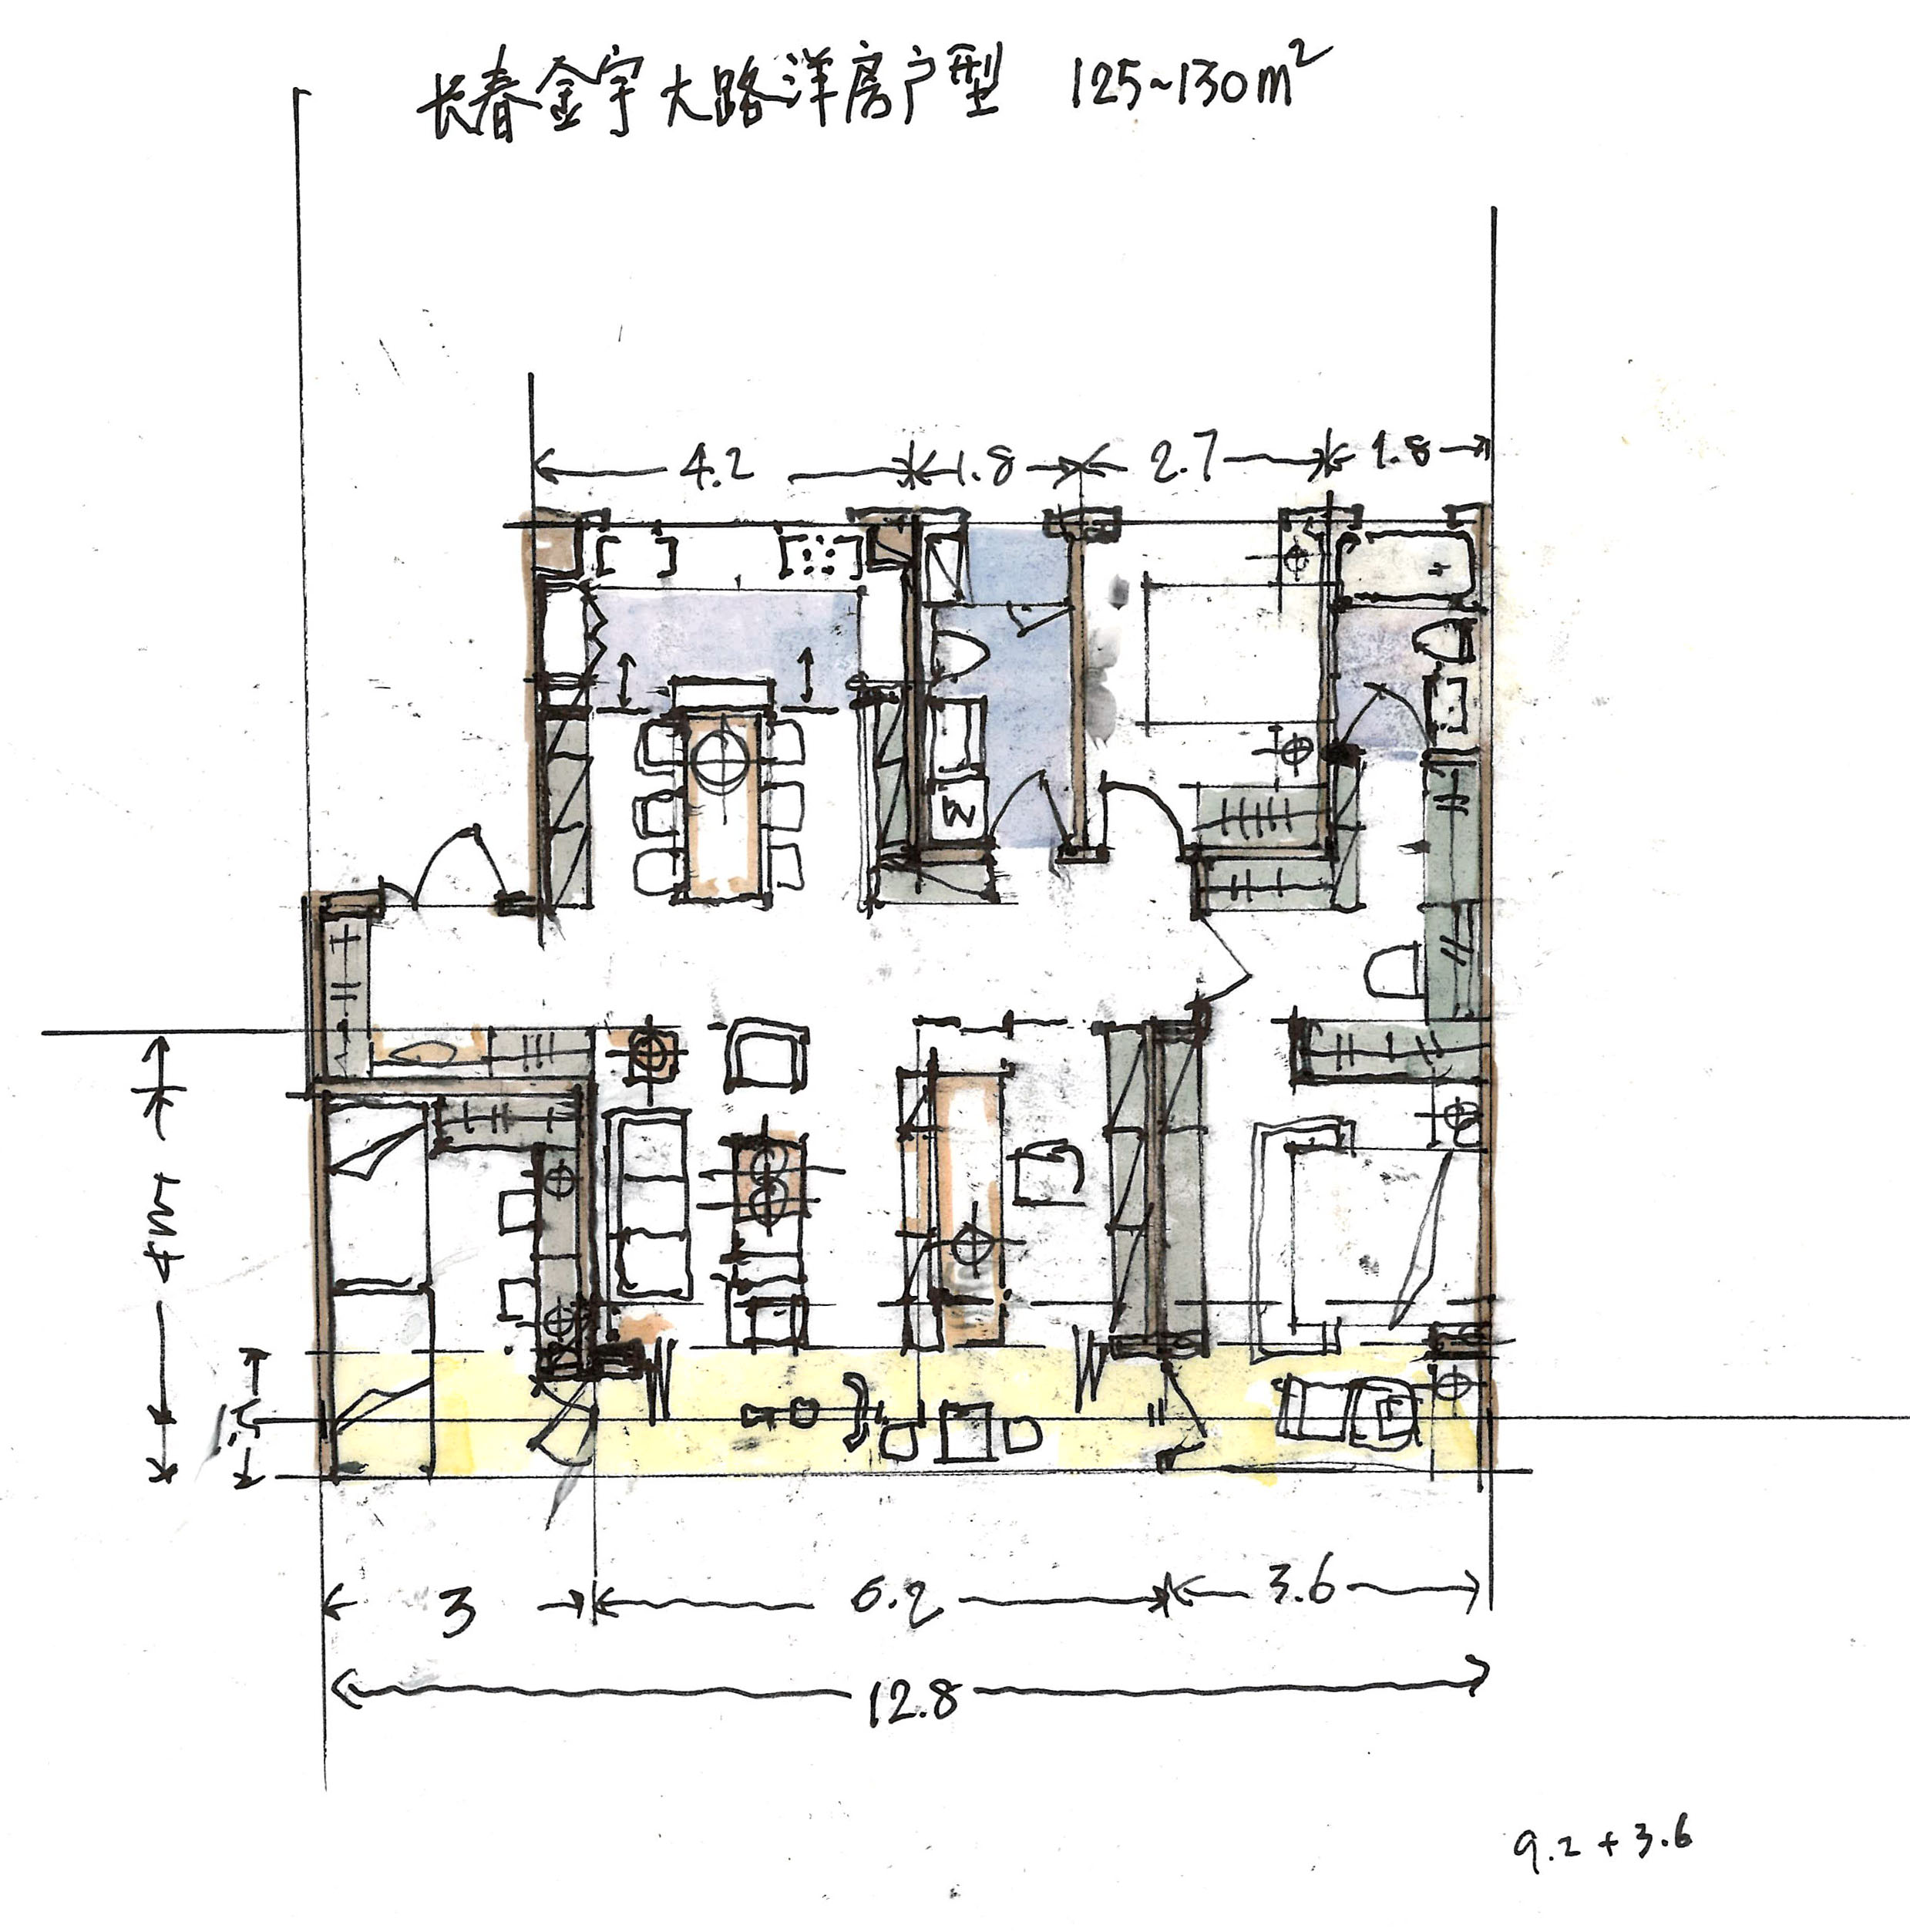 长春金宇大路洋房户型 125~130m²
4.2 1.8 2.7 1.8
W
3 6.2 3.6
12.8
9.2 + 3.6